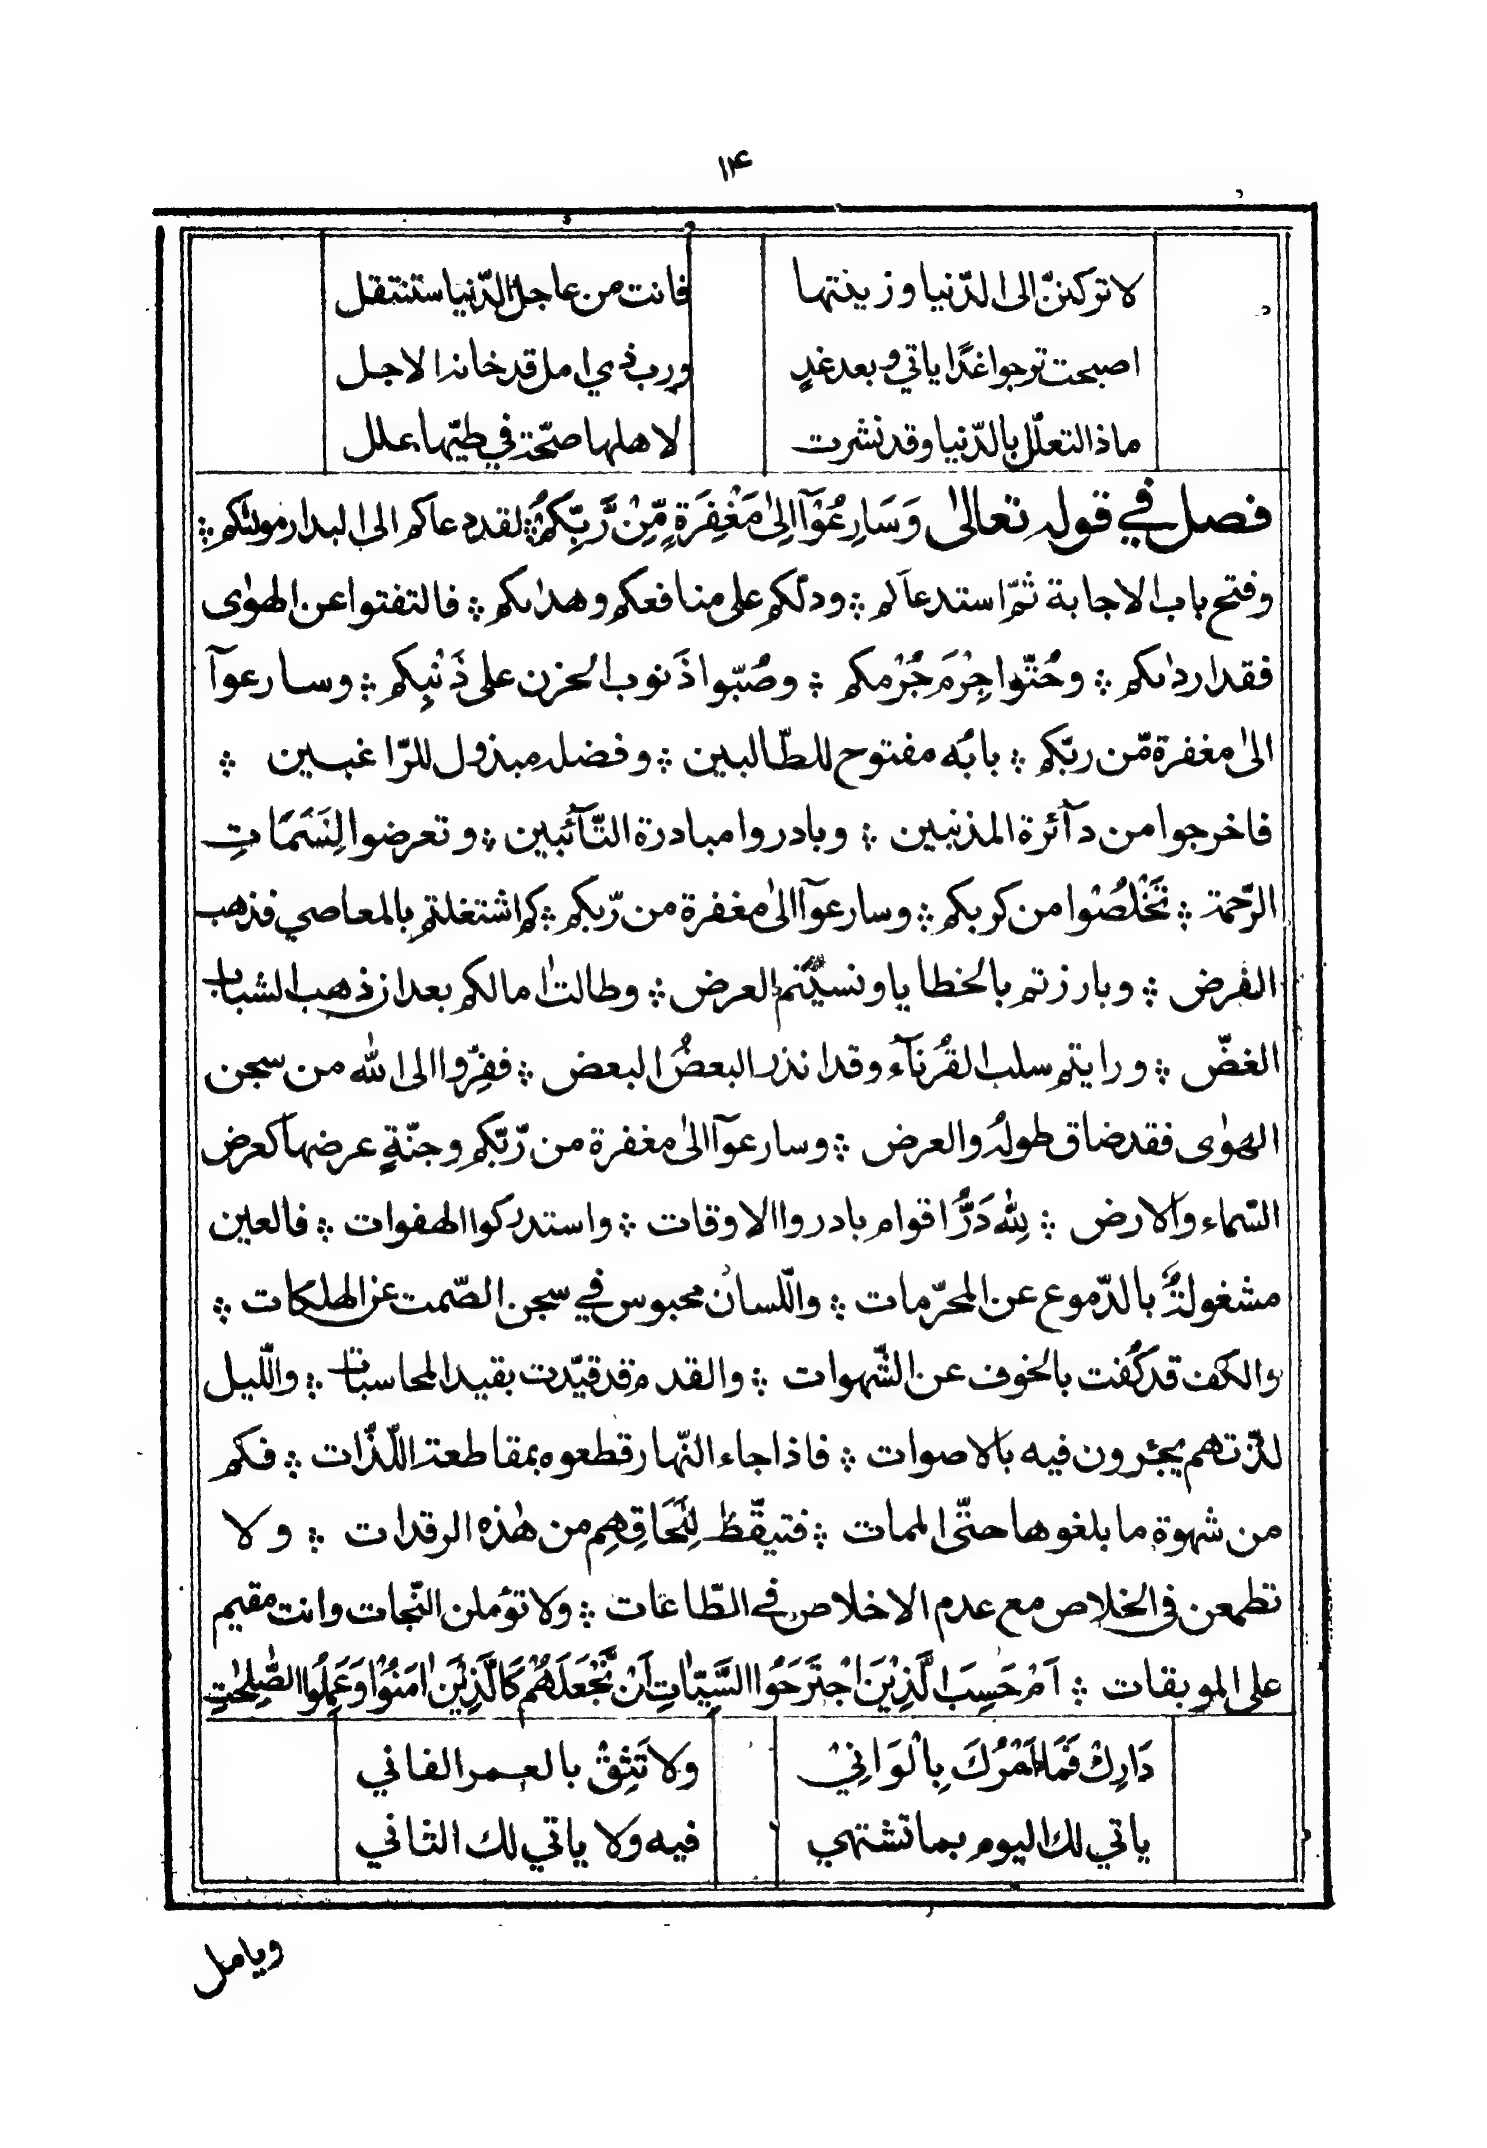 ۱۴
لا تركننّ الى الدّنيا وزينتها فانت من عاجل الدّنيا ستنتقل
اصبحت ترجوا غدًا ياتي وبعد غدٍ وربّ ذي امل قد خانه الاجل
ماذا التعلّل بالدّنيا وقد نشرت لاهلها صحّة في طيّها علل
فصل في قوله تعالىٰ وَسَارِعُوْٓا اِلىٰ مَغْفِرَةٍ مِّنْ رَّبِّكُمْ ؞ لقد دعاكم الى البدار مولٰىكم ؞
وفتح باب الاجابة ثمّ استدعاكم ؞ ودلّكم على منافعكم وهداىكم ؞ فالتفتوا عن الهوٰى
فقد ارداىكم ؞ وحُثّوا حِزْمَ جُرْمكم ؞ وصُبّوا ذَنوب الحزن على ذَنْبِكم ؞ وسارعوآ
الىٰ مغفرة مّن ربّكم ؞ بابُه مفتوح للطّالبين ؞ وفضله مبذول للرّاغبين ؞
فاخرجوا من دآئرة المذنبين ؞ وبادروا مبادرة التّآئبين ؞ وتعرضوا لِنَسَمَاتِ
الرّحمة ؞ تَخْلُصُوْا من كربكم ؞ وسارعوآ الىٰ مغفرة من رّبكم ؞ كم اشتغلتم بالمعاصي فذهب
الفرض ؞ وبارزتم بالخطايا ونسيتم العرض ؞ وطالت اٰمالكم بعد ان ذهب الشباب
الغضّ ؞ ورايتم سلب القُرنآء وقد انذر البعضُ البعض ؞ ففِرّوا الى الله من سجن
الهوٰى فقد ضاق طولهُ والعرض ؞ وسارعوآ الىٰ مغفرة من رّبّكم وجنّةٍ عرضها كعرض
السّماء والارض ؞ لِلّٰه دَرُّ اقوام بادروا الاوقات ؞ واستدركوا الهفوات ؞ فالعين
مشغولةٌ بالدّموع عن المحرّمات ؞ واللّسان محبوس في سجن الصّمت عن الهلكات ؞
والكف قد كُفت بالخوف عن الشّهوات ؞ والقدم قد قيّدت بقيد المحاسبات ؞ واللّيل
لذّتهم يجئرون فيه بالاصوات ؞ فاذا جاء النّهار قطعوه بمقاطعة اللّذّات ؞ فكم
من شهوة ما بلغوها حتّى الممات ؞ فتيقّظ لِلِّحَاقِهِم من هٰذه الرقدات ؞ ولا
تطمعن في الخلاص مع عدم الاخلاص في الطّاعات ؞ ولا تؤملن النّجات وانت مقيم
على الموبقات ؞ اَمْ حَسِبَ الَّذِيْنَ اجْتَرَحُوا السَّيِّاٰتِ اَنْ نَّجْعَلَهُمْ كَالَّذِيْنَ اٰمَنُوْا وَعَمِلُوا الصّٰلِحٰتِ
دَارِكْ فَمَا عُمْرُكَ بِالْوَانِيْ ولا تَثِقْ بالعمر الفاني
ياتي لك اليوم بما تشتهي فيه ولا ياتي لك الثاني
ويامل